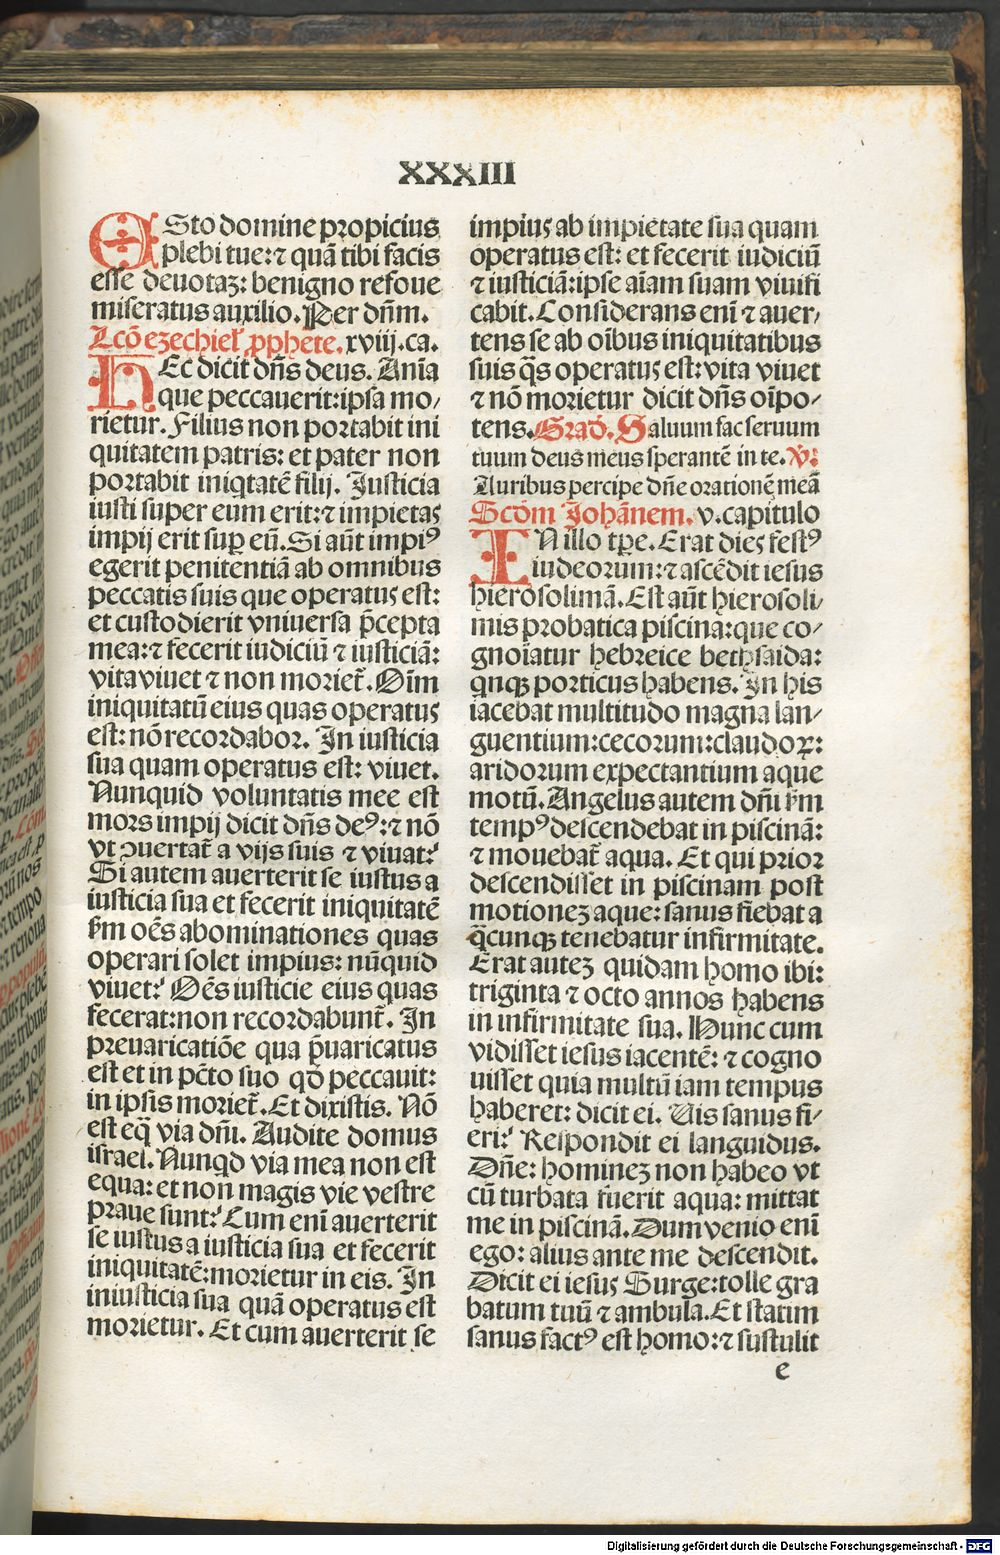 XXXIII
ESto domine propicius
plebi tue: ⁊ quā tibi facis
esse deuotaꝫ: benigno refoue
miseratus auxilio. Per dn̄m.
Lcō ezechieɫ ꝓphete. xviij. ca.
HEc dicit dn̄s deus. Anīa
que peccauerit: ipsa mo⸗
rietur. Filius non portabit ini
quitatem patris: et pater non
portabit iniqtatē filij. Iusticia
iusti super eum erit: ⁊ impietas
impij erit suꝑ eū. Si aūt impiꝰ
egerit penitentiā ab omnibus
peccatis suis que operatus est:
et custodierit vniuersa p̄cepta
mea: ⁊ fecerit iudiciū ⁊ iusticiā:
vita viuet ⁊ non moriet̄. Oīm
iniquitatū eius quas operatus
est: nō recordabor. In iusticia
sua quam operatus est: viuet.
Nunquid voluntatis mee est
mors impij dicit dn̄s deꝰ: ⁊ nō
vt ꝯuertat̄ a vijs suis ⁊ viuat?
Si autem auerterit se iustus a
iusticia sua et fecerit iniquitatē
ẜm oēs abominationes quas
operari solet impius: nūquid
viuet? Oēs iusticie eius quas
fecerat: non recordabunt̄. In
preuaricatiōe qua p̄uaricatus
est et in pctō suo qd̄ peccauit:
in ipsis moriet̄. Et dixistis. Nō
est eq̄ via dn̄i. Audite domus
israel. Nunqd via mea non est
equa: et non magis vie vestre
praue sunt? Cum enī auerterit
se iustus a iusticia sua et fecerit
iniquitatē: morietur in eis. In
iniusticia sua quā operatus est
morietur. Et cum auerterit se
impius ab impietate sua quam
operatus est: et fecerit iudiciū
⁊ iusticiā: ipse aīam suam viuifi
cabit. Considerans enī ⁊ auer⸗
tens se ab oībus iniquitatibus
suis q̄s operatus est: vita viuet
⁊ nō morietur dicit dn̄s oīpo⸗
tens. Grad̄. Saluum fac seruum
tuum deus meus sperantē in te. ℣.
Auribus percipe dn̄e orationē meā
Scd̄m Johānem. v. capitulo
IN illo tp̄e. Erat dies festꝰ
iudeorum: ⁊ ascēdit iesus
hierosolimā. Est aūt hierosoli⸗
mis probatica piscina: que co⸗
gnoīatur hebreice bethsaida:
qnqꝫ porticus habens. In his
iacebat multitudo magna lan⸗
guentium: cecorum: claudoꝝ:
aridorum expectantium aque
motū. Angelus autem dn̄i ẜm
tempꝰ descendebat in piscinā:
⁊ mouebat̄ aqua. Et qui prior
descendisset in piscinam post
motionez aque: sanus fiebat a
q̄cunqꝫ tenebatur infirmitate.
Erat auteꝫ quidam homo ibi:
triginta ⁊ octo annos habens
in infirmitate sua. Hunc cum
vidisset iesus iacentē: ⁊ cogno
uisset quia multū iam tempus
haberet: dicit ei. Uis sanus fi⸗
eri? Respondit ei languidus.
Dn̄e: hominez non habeo vt
cū turbata fuerit aqua: mittat
me in piscinā. Dum venio enī
ego: alius ante me descendit.
Dicit ei iesus Surge: tolle gra
batum tuū ⁊ ambula. Et statim
sanus factꝰ est homo: ⁊ sustulit
e
Digitalisierung gefördert durch die Deutsche Forschungsgemeinschaft - DFG